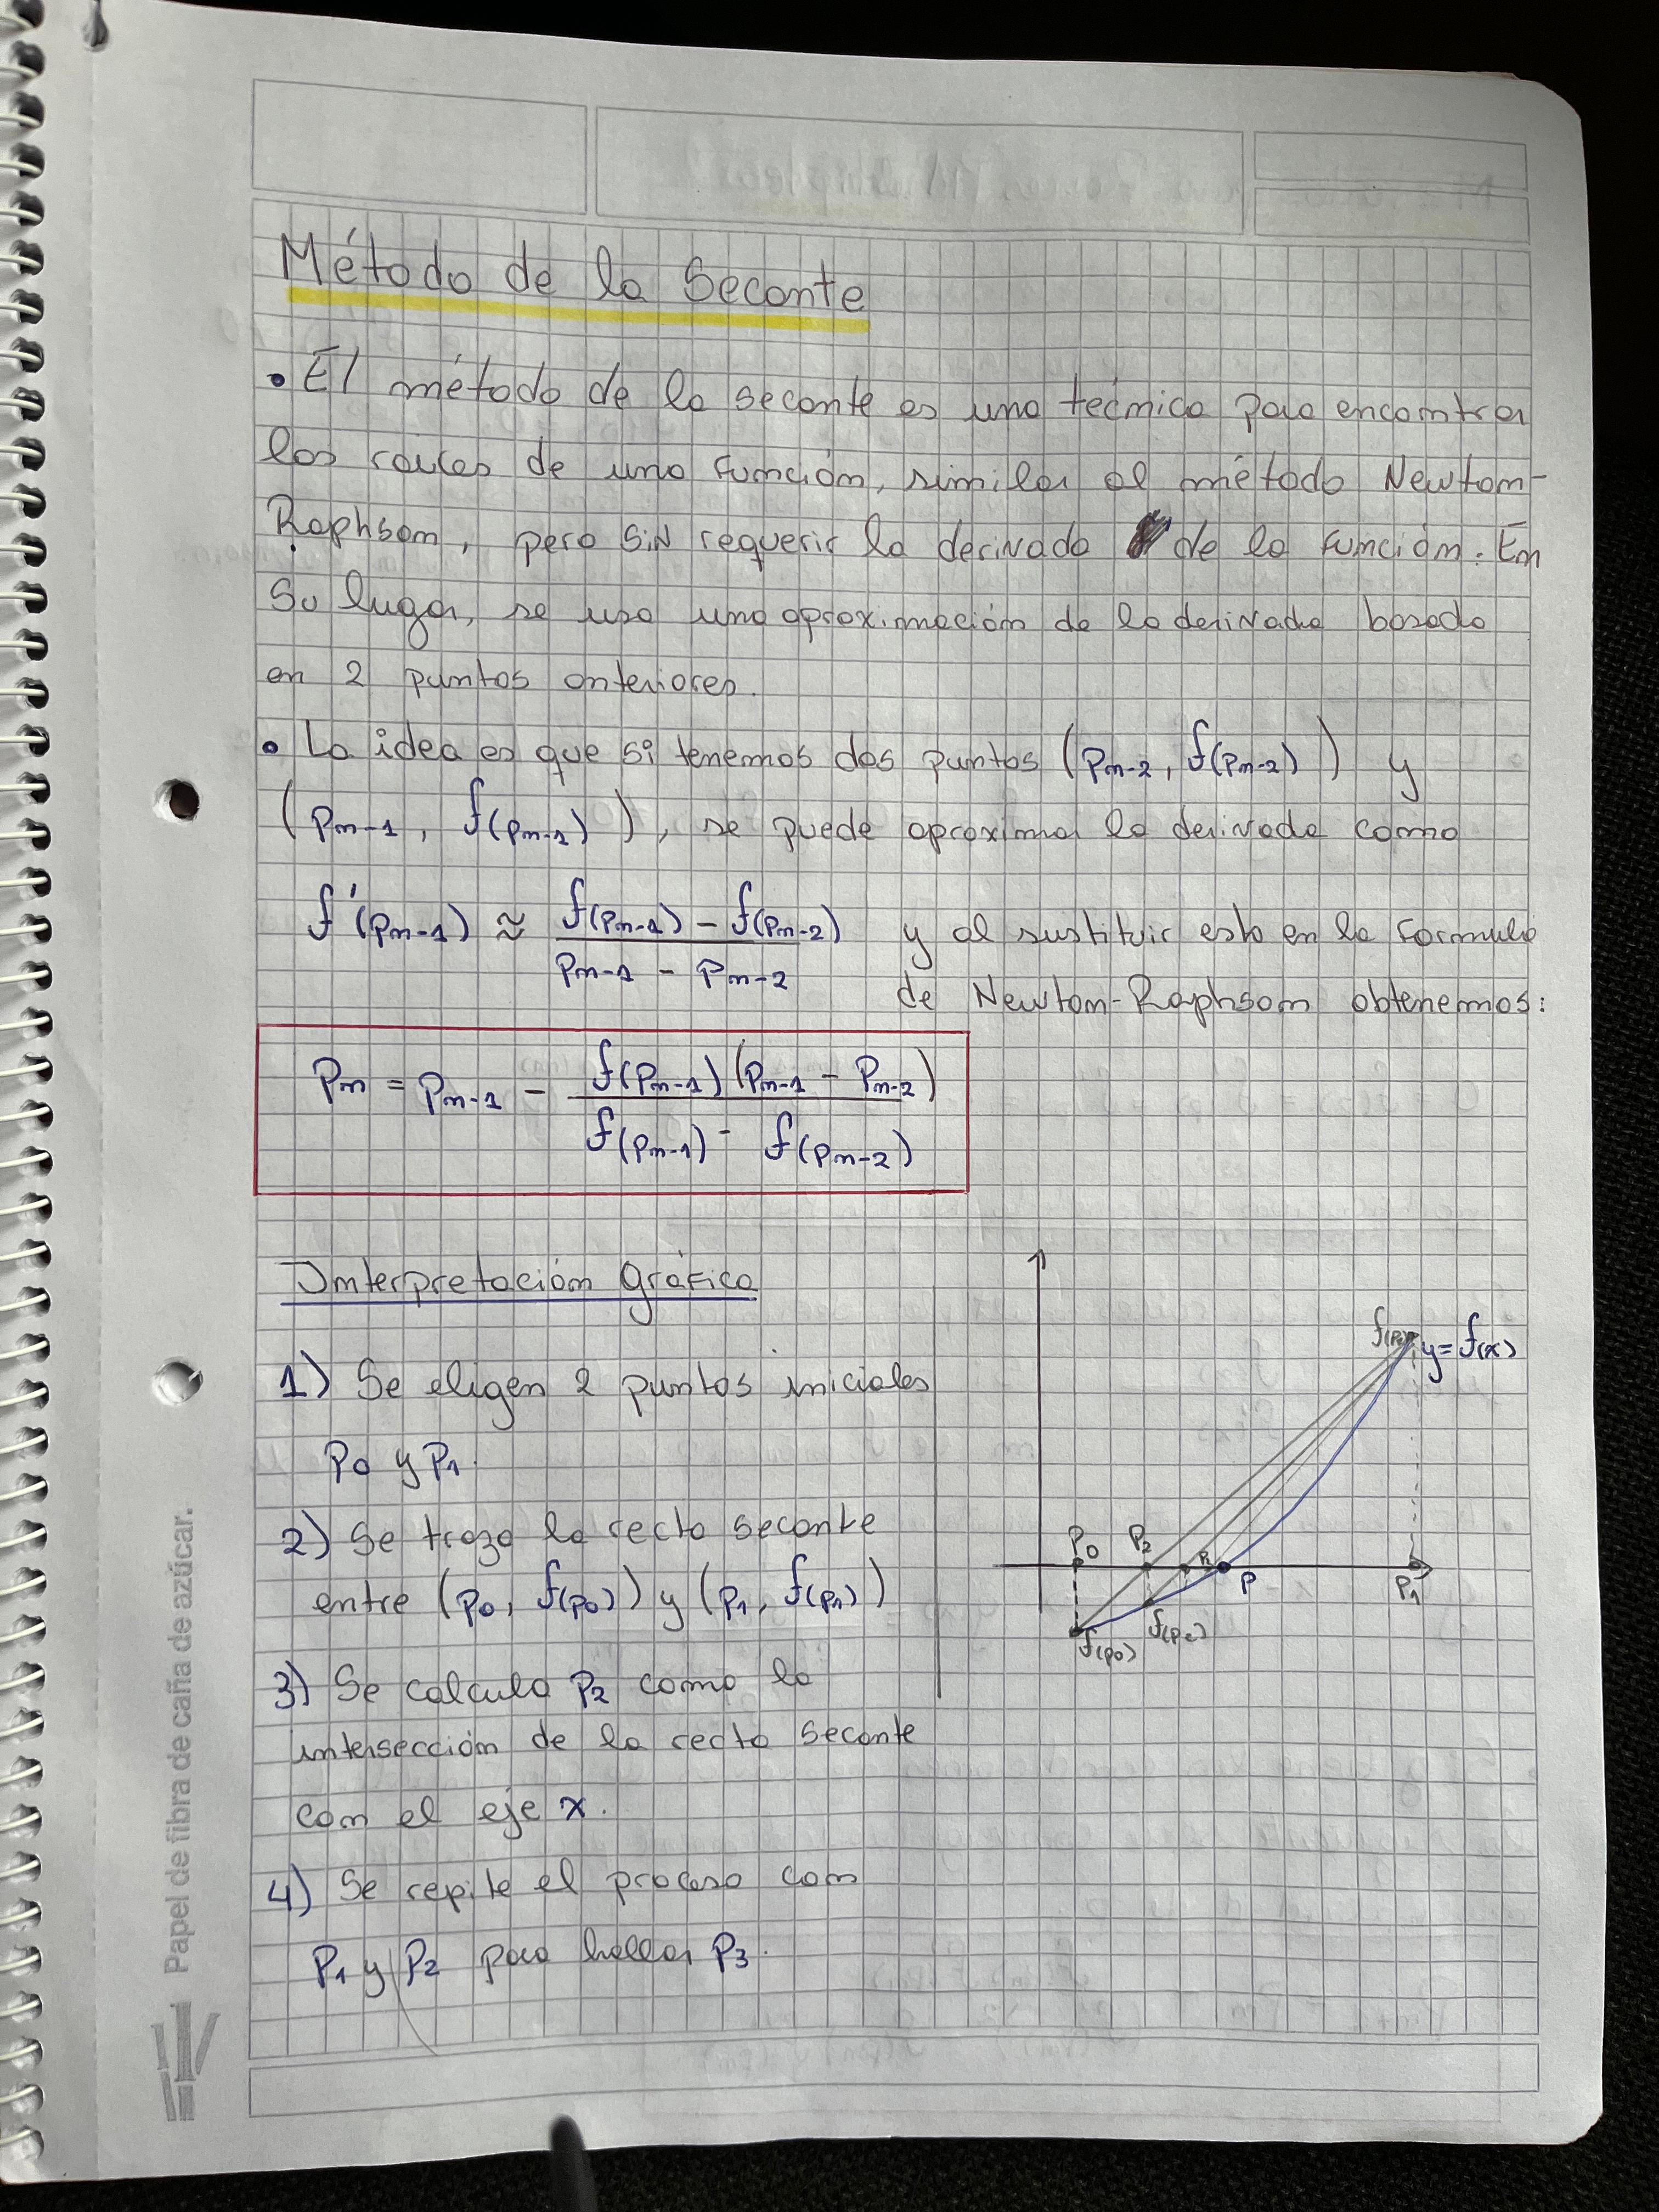 Método de la Secante
• El método de la secante es una técnica para encontrar
las raíces de una función, similar al método Newton-
Raphson, pero sin requerir la derivada de la función. En
su lugar, se usa una aproximación de la derivada basada
en 2 puntos anteriores.
• La idea es que si tenemos dos puntos (pn-2, f(pn-2)) y
(pn-1, f(pn-1)), se puede aproximar la derivada como
f'(pn-1) ≈ f(pn-1) - f(pn-2) / pn-1 - pn-2 y al sustituir esto en la formula
de Newton-Raphson obtenemos:
pn = pn-1 - f(pn-1)(pn-1 - pn-2) / f(pn-1) - f(pn-2)
Interpretación Gráfica
1) Se eligen 2 puntos iniciales
p0 y p1.
2) Se traza la recta secante
entre (p0, f(p0)) y (p1, f(p1))
3) Se calcula p2 como la
intersección de la recta secante
con el eje x.
4) Se repite el proceso con
p1 y p2 para hallar p3.
y = f(x)
p0 p2
p p1
f(p0) f(p2)
Papel de fibra de caña de azúcar.